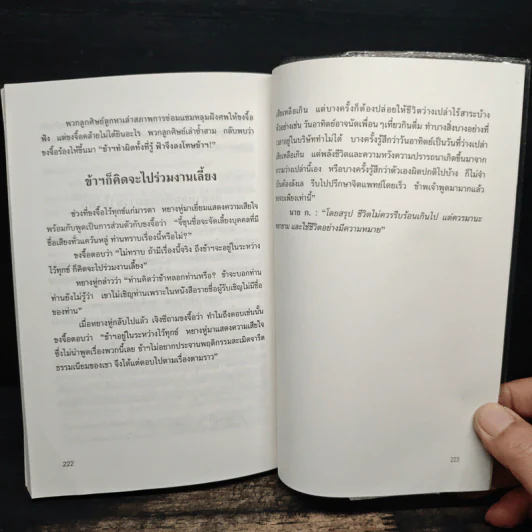 พวกลูกศิษย์ถูกหาเล่าสภาพการซ่อมแซมหลุมฝังศพให้ขงจื้อ
ฟัง แต่ขงจื้อคล้ายไม่ได้ยินอะไร พวกลูกศิษย์เล่าซ้ำสาม กลับพบว่า
ขงจื้อร้องไห้ขึ้นมา “ข้าฯทำผิดทั้งที่รู้ ฟ้าจึงลงโทษข้าฯ!”
ข้าฯก็คิดจะไปร่วมงานเลี้ยง
ช่วงที่ขงจื้อไว้ทุกข์แก่มารดา หยางหู่มาเยี่ยมแสดงความเสียใจ
พร้อมกับพูดเป็นการส่วนตัวกับขงจื้อว่า “จี้ซุนซื่อจะจัดเลี้ยงบุคคลที่มี
ชื่อเสียงทั่วแคว้นหลู่ ท่านทราบเรื่องนี้หรือไม่?”
ขงจื้อตอบว่า “ไม่ทราบ ถ้ามีเรื่องนี้จริง ถึงข้าฯจะอยู่ในระหว่าง
ไว้ทุกข์ ก็คิดจะไปร่วมงานเลี้ยง”
หยางหู่กล่าวว่า “ท่านคิดว่าข้าหลอกท่านหรือ? ข้าจะบอกท่าน
ท่านยังไม่รู้ว่า เขาไม่เชิญท่านเพราะในหนังสือรายชื่อผู้รับเชิญไม่มีชื่อ
ของท่าน”
เมื่อหยางหู่กลับไปแล้ว เจิงซีถามขงจื้อว่า ทำไมถึงตอบเช่นนั้น
ขงจื้อตอบว่า “ข้าฯอยู่ในระหว่างไว้ทุกข์ หยางหู่มาแสดงความเสียใจ
ซึ่งไม่น่าพูดเรื่องพวกนี้เลย ข้าฯไม่อยากประจานพฤติกรรมละเมิดจารีต
ธรรมเนียมของเขา จึงได้แต่ตอบไปตามเรื่องตามราว”
222
เสียเหลือเกิน แต่บางครั้งก็ต้องปล่อยให้ชีวิตว่างเปล่าไร้สาระบ้าง
ตัวอย่างเช่น วันอาทิตย์อาจนัดเพื่อนๆเที่ยวกินดื่ม ทำบางสิ่งบางอย่างที่
เวลาอยู่ในบริษัททำไม่ได้ บางครั้งรู้สึกว่าวันอาทิตย์เป็นวันที่ว่างเปล่า
เสียเหลือเกิน แต่พลังชีวิตและความหวังความปรารถนาเกิดขึ้นมาจาก
ความว่างเปล่านี้เอง หรือบางครั้งรู้สึกว่าตัวเองผิดปกติไปบ้าง ก็ไม่จำ
ต้องลังเล รีบไปปรึกษาจิตแพทย์โดยเร็ว ข้าพเจ้าพูดมามากแล้ว
เพียงเท่านี้”
นาย ก. : “โดยสรุป ชีวิตไม่ควรรีบร้อนเกินไป แต่ควรมานะ
และใช้ชีวิตอย่างมีความหมาย”
223